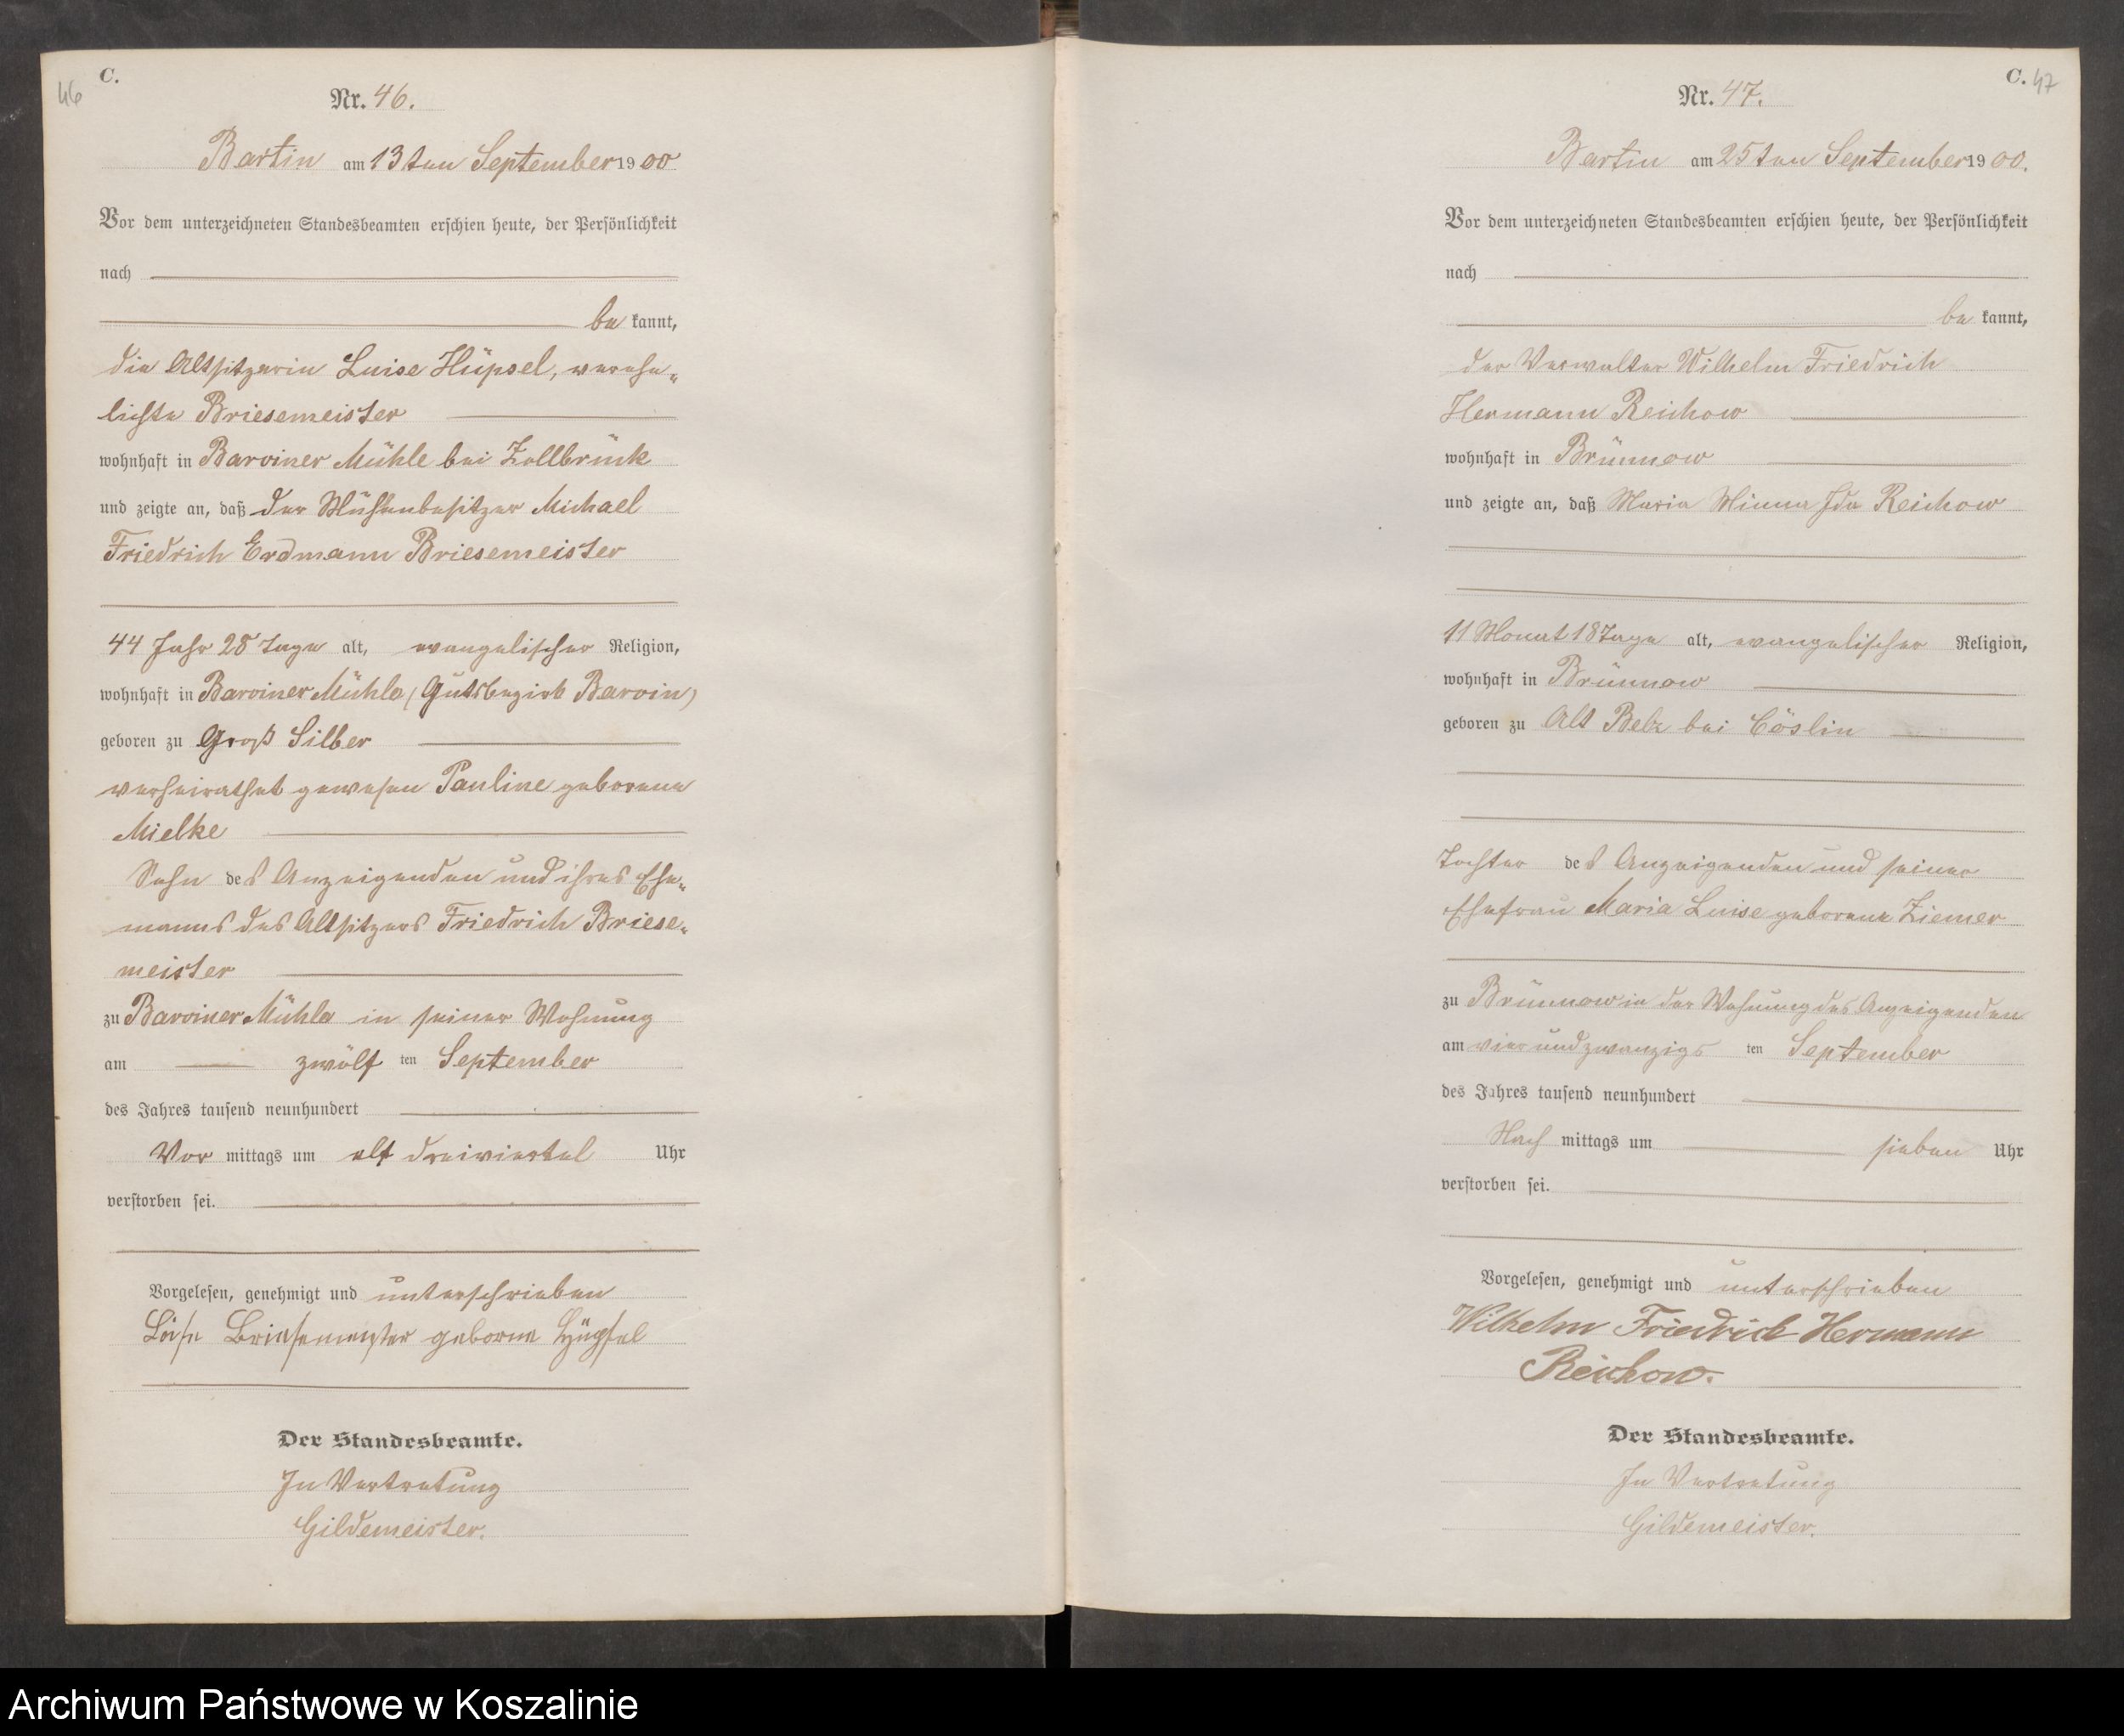 46
C.
Nr. 46.
Bartin am 13ten September 1900
Vor dem unterzeichneten Standesbeamten erschien heute, der Persönlichkeit
nach
be kannt,
die Altsitzerin Luise Hüpsel, verehe-
lichte Briesemeister
wohnhaft in Barviner Mühle bei Zollbrück
und zeigte an, daß der Mühlenbesitzer Michael
Friedrich Erdmann Briesemeister
44 Jahr 28 Tage alt, evangelischer Religion,
wohnhaft in Barviner Mühle (Gutsbezirk Barvin)
geboren zu Groß Silber
verheirathet gewesen Pauline geborene
Mielke
Sohn des Anzeigenden und ihres Ehe-
manns des Altsitzers Friedrich Briese-
meister
zu Barviner Mühle in seiner Wohnung
am zwölf ten September
des Jahres tausend neunhundert
Vor mittags um elf dreiviertel Uhr
verstorben sei.
Vorgelesen, genehmigt und unterschrieben
Luise Briesemeister geborne Hüpsel
Der Standesbeamte.
In Vertretung
Gildemeister.
C. 47
Nr. 47.
Bartin am 25ten September 1900.
Vor dem unterzeichneten Standesbeamten erschien heute, der Persönlichkeit
nach
be kannt,
der Verwalter Wilhelm Friedrich
Hermann Reichow
wohnhaft in Brünnow
und zeigte an, daß Maria Minna Ida Reichow
11 Monat 18 Tage alt, evangelischer Religion,
wohnhaft in Brünnow
geboren zu Alt Belz bei Cöslin
Tochter des Anzeigenden und seiner
Ehefrau Maria Luise geborene Ziemer
zu Brünnow in der Wohnung des Anzeigenden
am vierundzwanzigs ten September
des Jahres tausend neunhundert
Nach mittags um sieben Uhr
verstorben sei.
Vorgelesen, genehmigt und unterschrieben
Wilhelm Friedrich Hermann
Reichow.
Der Standesbeamte.
In Vertretung
Gildemeister.
Archiwum Państwowe w Koszalinie